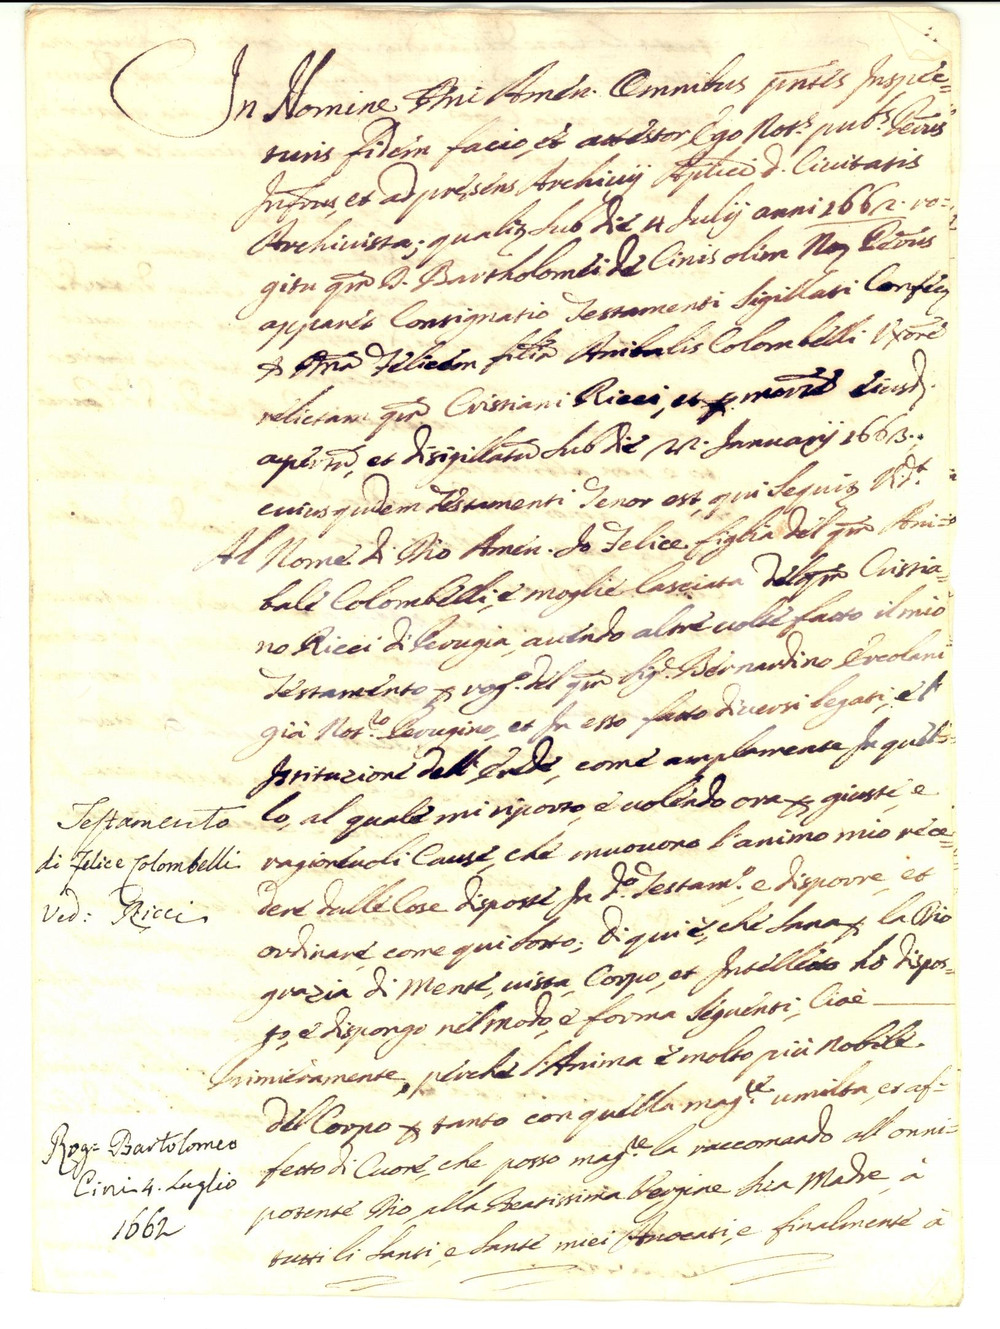 In Nomine Dni Amen. Omnibus pntēs Inspec=
turis fidem facio, et attestor Ego Nots. pubs. Perus
Infrus, et ad presens Archivij Aplici d. Civitatis
Archivista; qualiter sub die 4 Julij anni 1662. ro=
gitu qm D. Bartholomei de Cinis olim Perus
apparet Consignatio Testamenti Sigillati
Dnā Felicem filiā Anibalis Colombelli Uxore
relictam qm Cristiani Ricci, et p. morte eiusd.
apertū, et disigillatū sub die 22. Januarij 1663.
cuius quidem Testamenti Tenor est, qui sequit
Al Nome di Dio Amen. Io Felice figlia del qm Ani=
bale Colombelli, e moglie lasciata del qm Cristia=
no Ricci di Perugia, avendo altre volte fatto il mio
Testamento p rogo. del qm Sigr. Bernardino Ercolani
già Notro. Perugino, et In esso fatto diversi legati, e l'
Istituzione dell'Erede, come amplamente In quel=
lo, al quale mi riporto, e volendo ora p giuste, e
ragionevoli Cause, che muovono l'animo mio rece=
dere dalle Cose disposte In do. Testamo. e disporre, et
ordinare, come qui sotto; di qui è, che sana p la Dio
grazia di Mente, vista, Corpo, et Intelletto hò dispos=
to, e dispongo nel modo, e forma seguenti, Cioè
Primieramente, perche l'Anima è molto più Nobile
del Corpo p tanto con quella magre. umiltà, et af=
fetto di Cuore, che posso magre. la raccomando all'onni=
potente Dio, alla Beatissima Vergine sua Madre, à
tutti li Santi, e Sante miei Avocati, e finalmente à
Testamento
di Felice Colombelli
Ved: Ricci
Rog= Bartolomeo
Cini 4. Luglio
1662